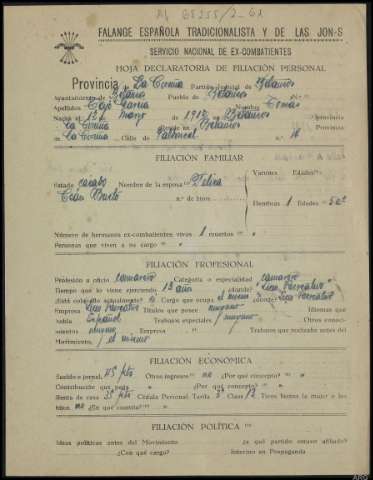 FALANGE ESPAÑOLA TRADICIONALISTA Y DE LAS JON-S
SERVICIO NACIONAL DE EX-COMBATIENTES
HOJA DECLARATORIA DE FILIACIÓN PERSONAL
Provincia de La Coruña Partido Judicial de Betanzos
Ayuntamiento de Betanzos Pueblo de Betanzos
Apellidos García Nombre Tomás
Nació el de Mayo de 1912 en Betanzos Provincia
La Coruña Reside en Betanzos Provincia
La Coruña Calle de n.º 16
FILIACIÓN FAMILIAR
Estado casado Nombre de la esposa Felisa Varones Edades
n.º de hijos Hembras 1 Edades
Número de hermanos ex-combatientes vivos 1 muertos
Personas que viven a su cargo
FILIACIÓN PROFESIONAL
Profesión u oficio camarero Categoría o especialidad camarero
Tiempo que lo viene ejerciendo 13 años ¿dónde? Liceo Recreativo
¿Está colocado actualmente? si Cargo que ocupa el mismo ¿dónde? Liceo Recreativo
Empresa Liceo Recreativo Títulos que posee ninguno Idiomas que
habla Español Trabajos especiales ninguno Otros conoci-
mientos ninguno Empresa Trabajos que realizaba antes del
Movimiento, el mismo
FILIACIÓN ECONÓMICA
Sueldo o jornal, pts Otros ingresos no ¿Por qué concepto?
Contribución que paga ¿Por qué concepto?
Renta de casa 35 pts Cédula Personal Tarifa Clase Tiene bienes la mujer o los
hijos no ¿De qué cuantía?
FILIACIÓN POLÍTICA
Ideas políticas antes del Movimiento ¿a qué partido estuvo afiliado?
¿Con qué cargo? Intervino en Propaganda